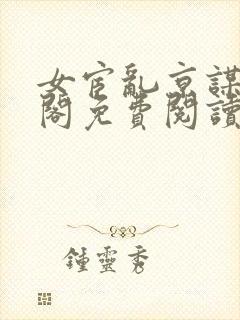 女宦亂京謀
閣免費閱讀
鍾靈秀